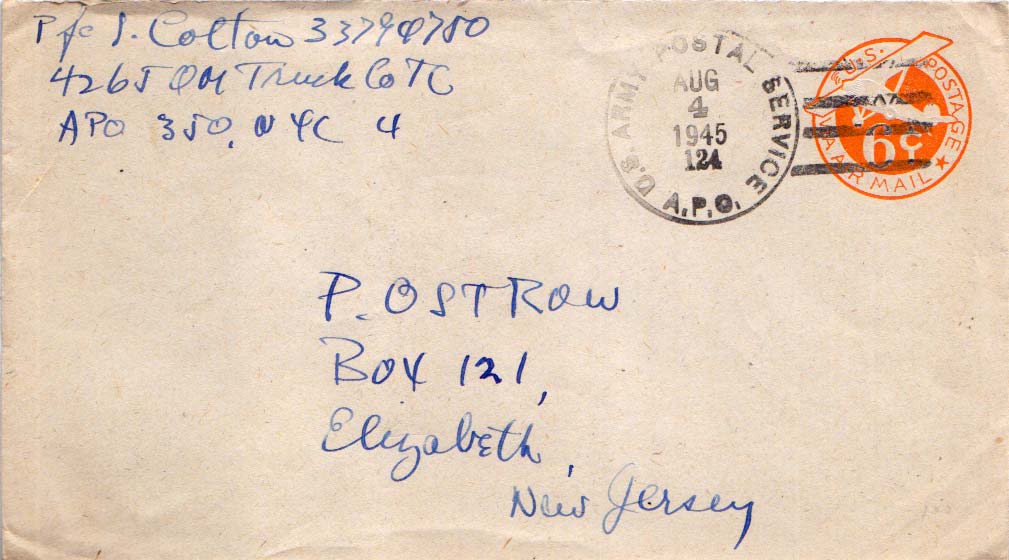 Pfc I. Colton 33794780
4265 QM Truck Co TC
APO 350, NYC 4
U.S. ARMY POSTAL SERVICE
AUG
4
1945
124
A.P.O.
U.S. POSTAGE
6¢
VIA AIR MAIL
P. OSTROW
BOX 121,
Elizabeth,
New Jersey